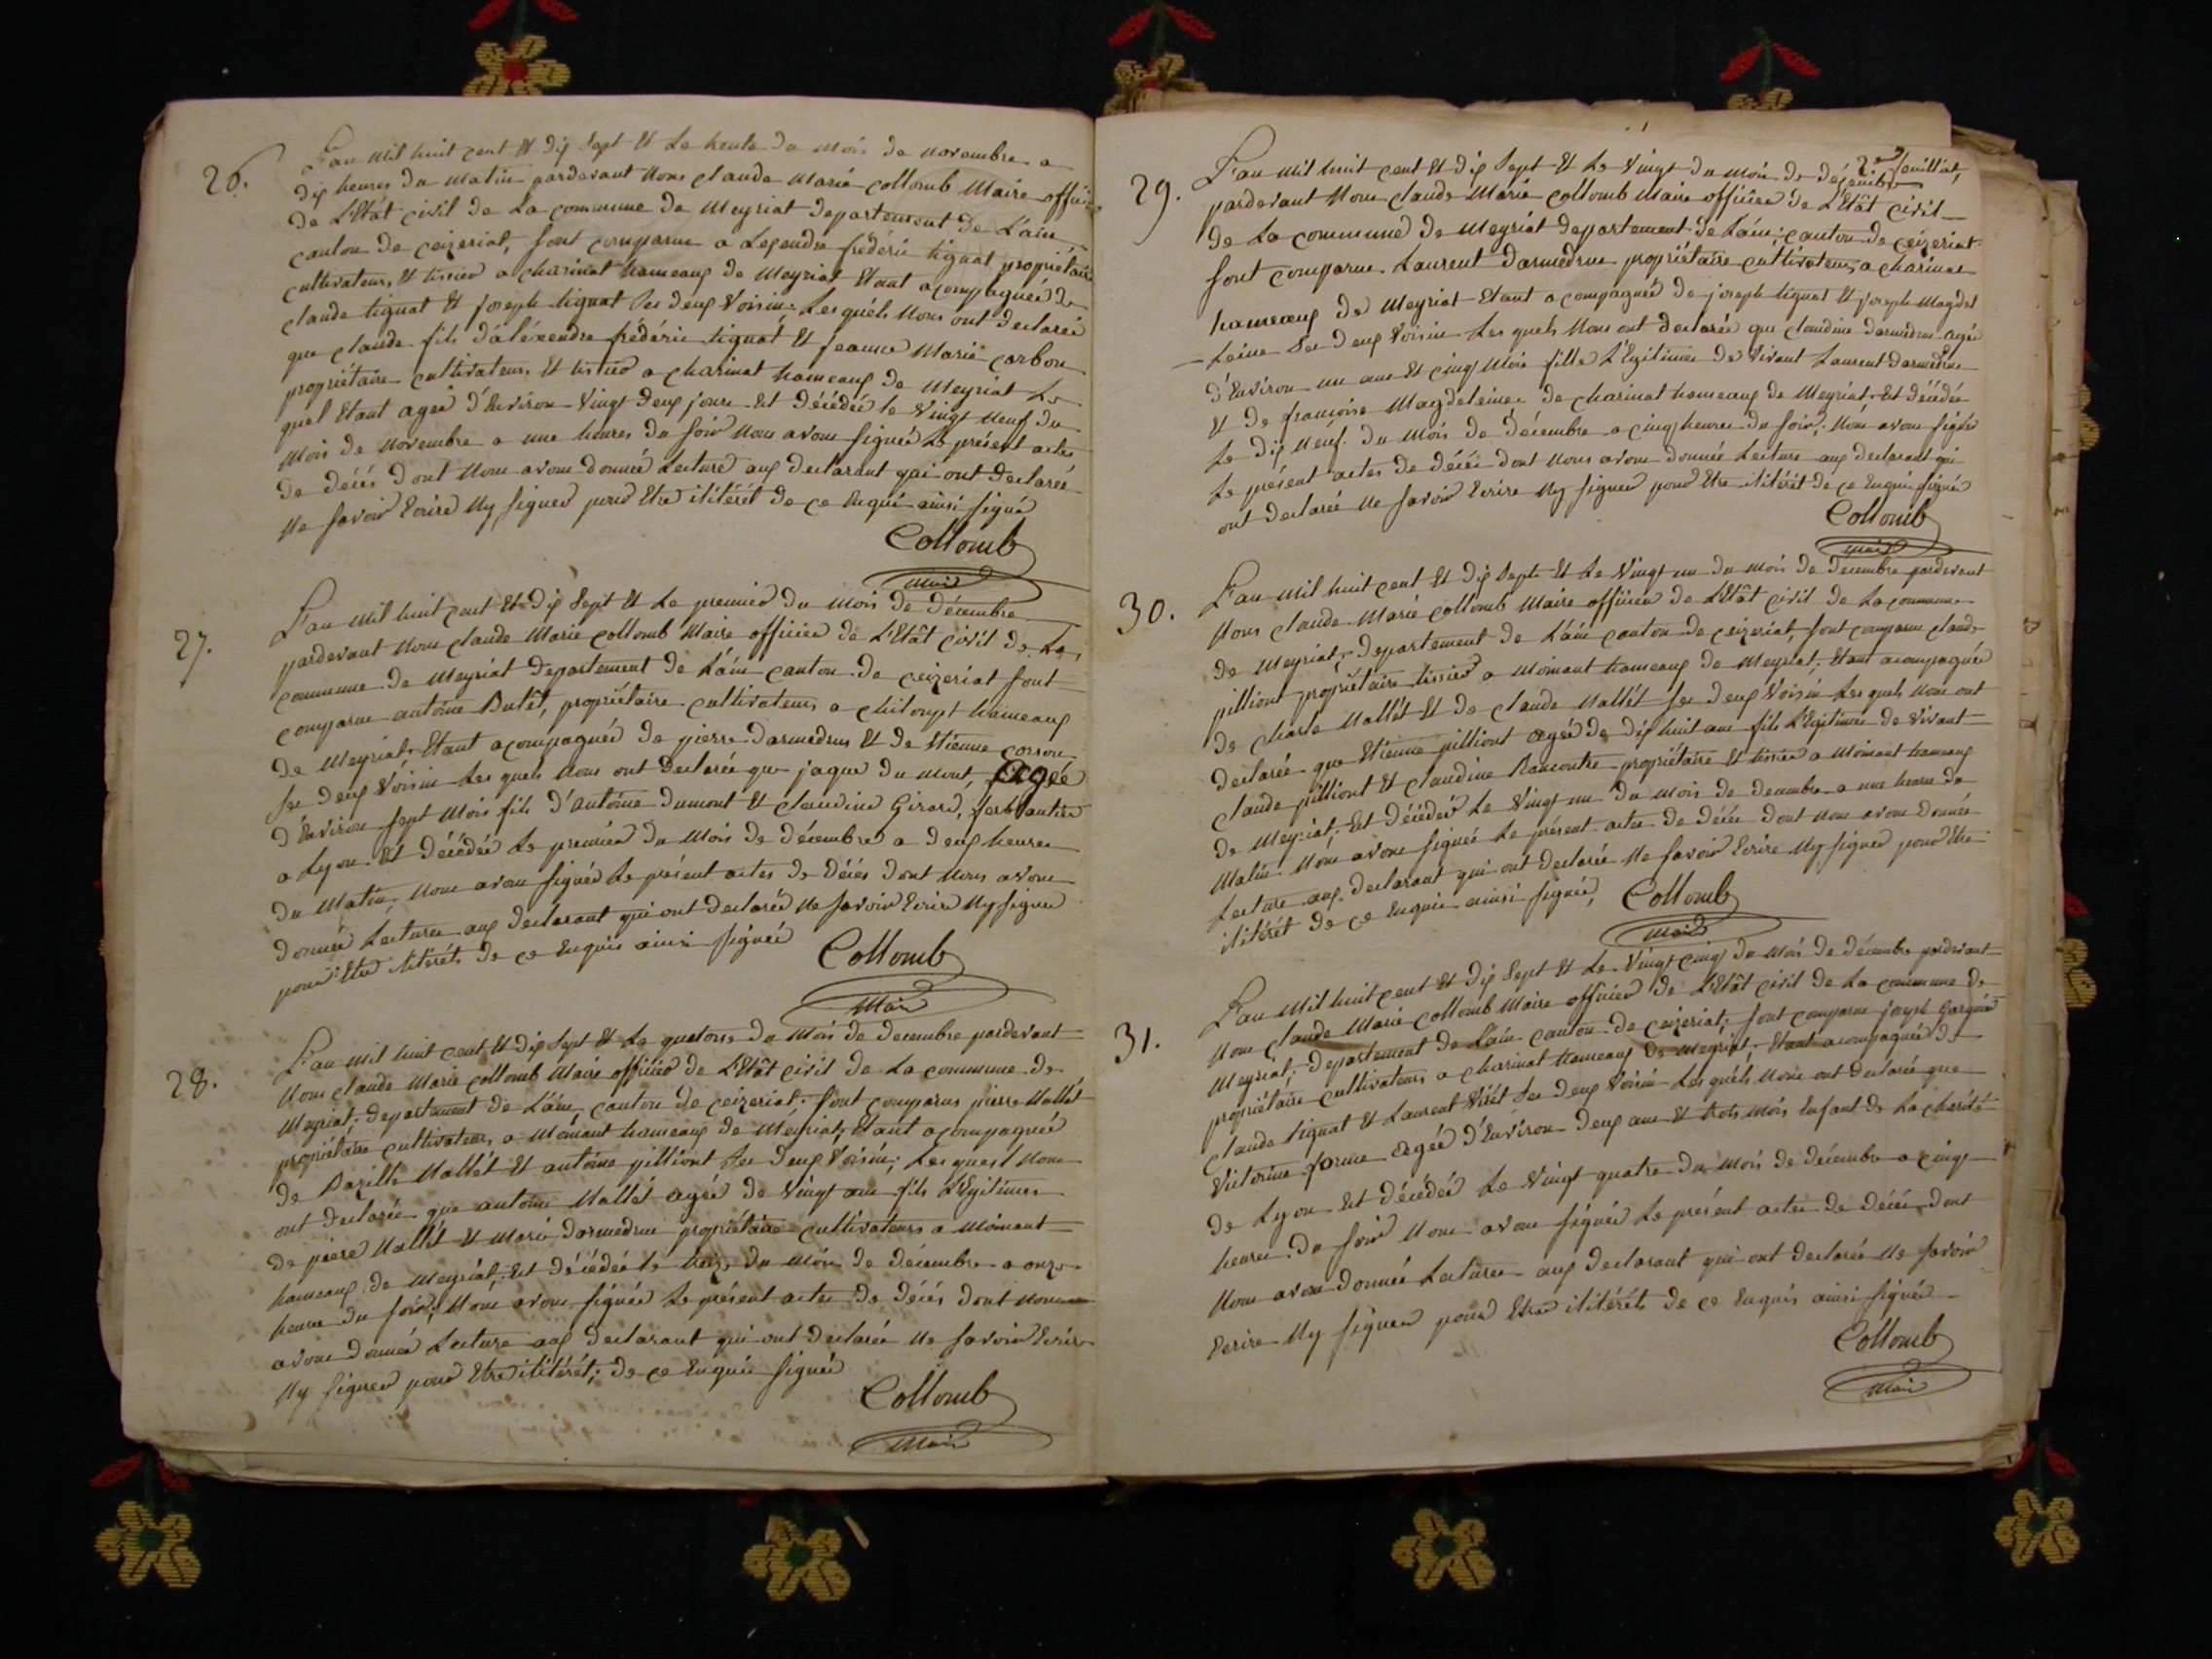 26.
L'an mil huit cent et dix sept et le trente du mois de novembre a
dix heures du matin pardevant nous claude marie collomb maire officier
de L'Etât civil de La commune de meyriat departement de L'ain
canton de ceizeriat, sont comparue a Lexendre frédéric tignat propriétaire
cultivateurs et tissier a charinat hameaux de meyriat Etant acompagnée de
claude tignat et joseph tignat ses deux voisin; Lesquéls nous ont declarée
que claude fils d'aléxendre frédéric tignat et jeanne marie carbon
propriétaire cultivateurs et tissier a charinat hameaux de meyriat Le
quel Etant ageé d'Environ vingt deux jours est décédée le vingt neuf du
mois de novembre a une heures du soir nous avons signée Le présent actes
de décés dont nous avons donnée Lecture aux declarant qui ont declarée
ne savoir Ecrire ny signer pour Etre ilitérét de ce Enquis ainsi signé
Collomb
maire
27.
L'an mil huit cent Et dix sept et Le premier du mois de décembre
pardevant nous claude marie collomb maire officier de L'Etât civil de La
commune de meyriat departement de L'ain canton de ceizeriat sont
comparue antoine Butét, propriétaire cultivateurs a chiloupt hameaux
de meyriat, Etant acompagnée de pierre darmedrus et de Etienne corson
ses deux voisin Lesquels nous ont declarée que jaque du mont, agée
d'Environ sept mois fils d'antoine dumont et claudine Girard,
a Lyon Est décédée Le premier du mois de décembre a deux heures
du matin, nous avons signée Le présent actes de décés dont nous avons
donnée Lecture aux declarant qui ont declarée ne savoir Ecrire ny signer
pour Etre ilitéréts de ce Enquis ainsi signée
Collomb
maire
28.
L'an mil huit cent et dix sept et Le quatorse du mois de decembre pardevant
nous claude marie collomb maire officier de L'Etât civil de La commune de
meyriat; departement de L'ain, canton de ceizeriat; sont comparus pierre Mallét
propriétaire cultivateurs, a moinant hameaux de meyriat, Etant acompagnée
de Bazille Mallét Et antoine pilliont ses deux voisin; Lesquest nous
ont declarée que antoine Mallét agée de vingt ans fils L'Egitimes
de piere Mallét et marie darmedrus propriétaire cultivateurs a moinant
hameaux de meyriat, Est décédée le treize du mois de décembre a onze
heures du soir, nous avons signée Le présent actes de décés dont nous
avons donnée Lecture aux declarant qui ont declarée ne savoir Ecrire
ny signer pour Etre ilitérét; de ce Enquis signée
Collomb
maire
2 feuillet
29.
L'an mil huit cent Et dix sept Et Le vingt du mois de décembre
pardevant nous claude Marie collomb maire officier de L'Etât civil
de La commune de meyriat departement de L'ain; canton de ceizeriat
sont comparue Laurent darmedrus propriétaire cultivateurs a charinat
hameaux de meyriat Etant acompagnée de joseph tignat Et joseph magde
Leine ses deux voisin Les quels nous ont declarée que claudine darmedrus agée
d'Environ un ans Et cinq mois fille L'Egitimes de vivant Laurent darmedrus
Et de françoise magdeleine de charinat hameaux de meyriat Est décédée
Le dix neuf du mois de décembre a cinq heures du soir; nous avons signée
Le présent actes de décés dont nous avons donnée Lecture aux declarant qui
ont declarée ne savoir Ecrire ny signer pour Etre ilitérét de ce Enquis signée
Collomb
maire
30.
L'an mil huit cent Et dix sept Et Le vingt un du mois de décembre pardevant
nous claude marie collomb maire officier de L'Etât civil de La commune
de meyriat, departement de L'ain canton de ceizeriat, sont comparue claude
pilliont propriétaire tissier a moinant hameaux de meyriat; Etant acompagnée
de charle Mallét Et de claude Mallét ses deux voisin Les quels nous ont
declarée que Etienne pilliont agée de dix huit ans fils L'Egitimes de vivant
claude pilliont Et claudine Rancontre propriétaire et tissier a moinant hameaux
de meyriat, Est décédée Le vingt un du mois de decembre a une heure du
matin nous avons signée Le présent actes de décés dont nous avons donnée
Lecture aux declarant qui ont declarée ne savoir Ecrire ny signer pour Etre
ilitérét de ce Enquis ainsi signée, Collomb
maire
31.
L'an mil huit cent Et dix sept Et Le vingt cinq du mois de décembre pardevant
nous claude marie collomb maire officier de L'Etât civil de La commune de
meyriat; departement de L'ain canton de ceizeriat; sont comparue joseph
propriétaire cultivateurs a charinat hameaux de meyriat; Etant acompagnée de
claude tignat Et Laurent ses deux voisin Les quéls nous ont declarée que
victorine forme agée d'Environ deux ans Et trois mois Enfant de La charité
de Lyon Est décédée Le vingt quatre du mois de décembre a cinq
heures du soir nous avons signée Le présent actes de décés dont
nous avons donnée Lectures aux declarant qui ont declarée ne savoir
Ecrire ny signer pour Etre ilitéréts de ce Enquis ainsi signée
Collomb
maire